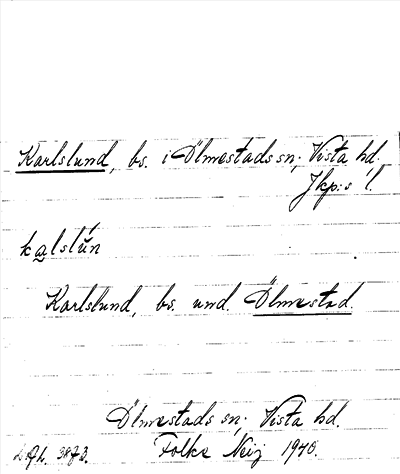 Karlslund, bs. i Ölmestads sn; Vista hd.
Jkp:s l.
kalslún
Karlslund, bs. und. Ölmestad.
Ölmestads sn; Vista hd.
Folke Neij 1940.